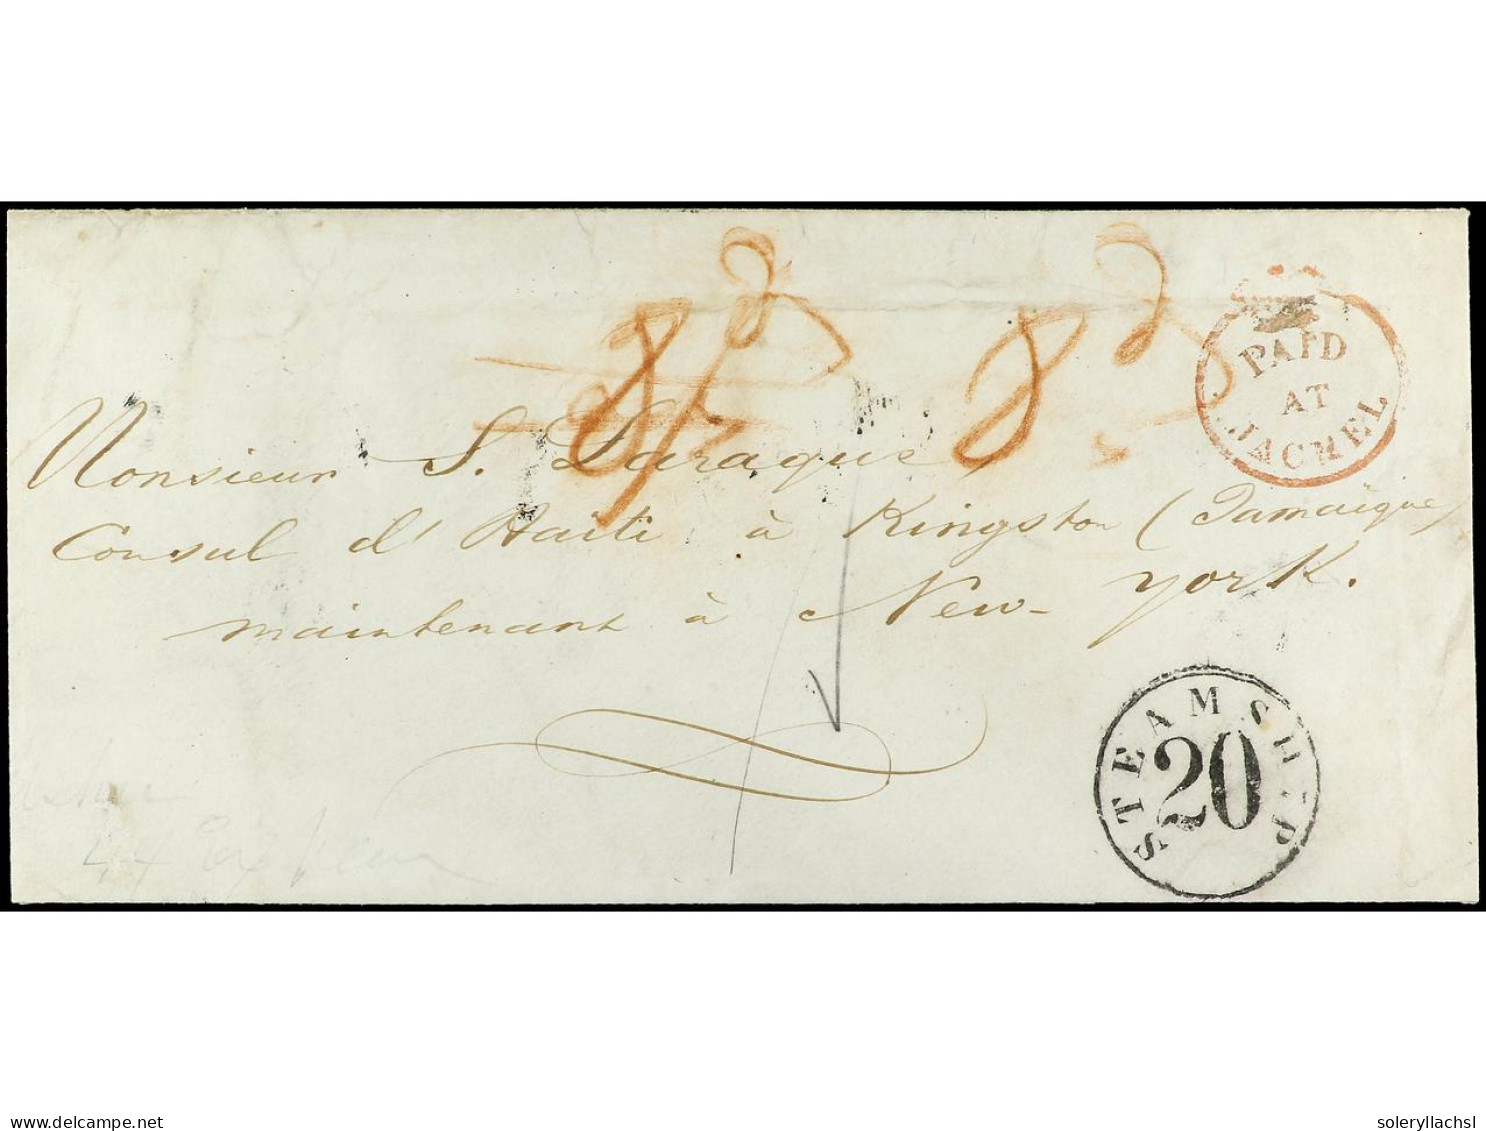 8d
PAID
AT
JACMEL
Monsieur S. Laraque,
Consul d'Haïti à Kingston (Jamaïque)
maintenant à New-York.
STEAMSHIP
20
delcampe.net
soleryllachsl